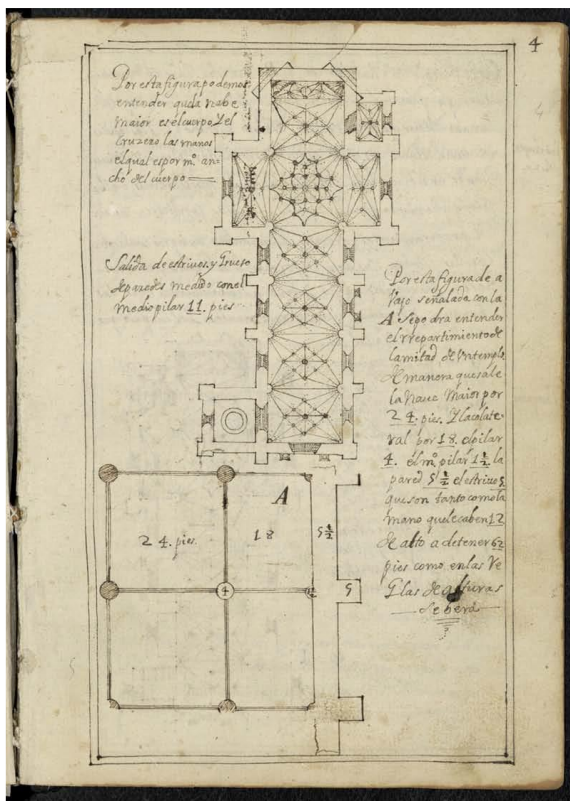 4
Por esta figura podemos
entender que la nabe
maior es el cuerpo y el
Cruzero las manos
el qual es por mº. an-
cho del cuerpo
Salida de estrivos, y Grueso
de paredes medido con el
medio pilar 11. pies
Por esta figura de a
bajo señalada con la
A se podra entender
el rrepartimiento de
la mitad de Un templo
de manera que sale
la nave Maior por
24. pies. Y la colate
ral por 18. el pilar
4. el mº. pilar 1½. la
pared 5½ el estrivo 5
que son tanto como la
mano que le caben 12
de alto a de tener 62
pies como en las Re
Glas de alturas
se bera
A
24. pies.
18
5½
4
5